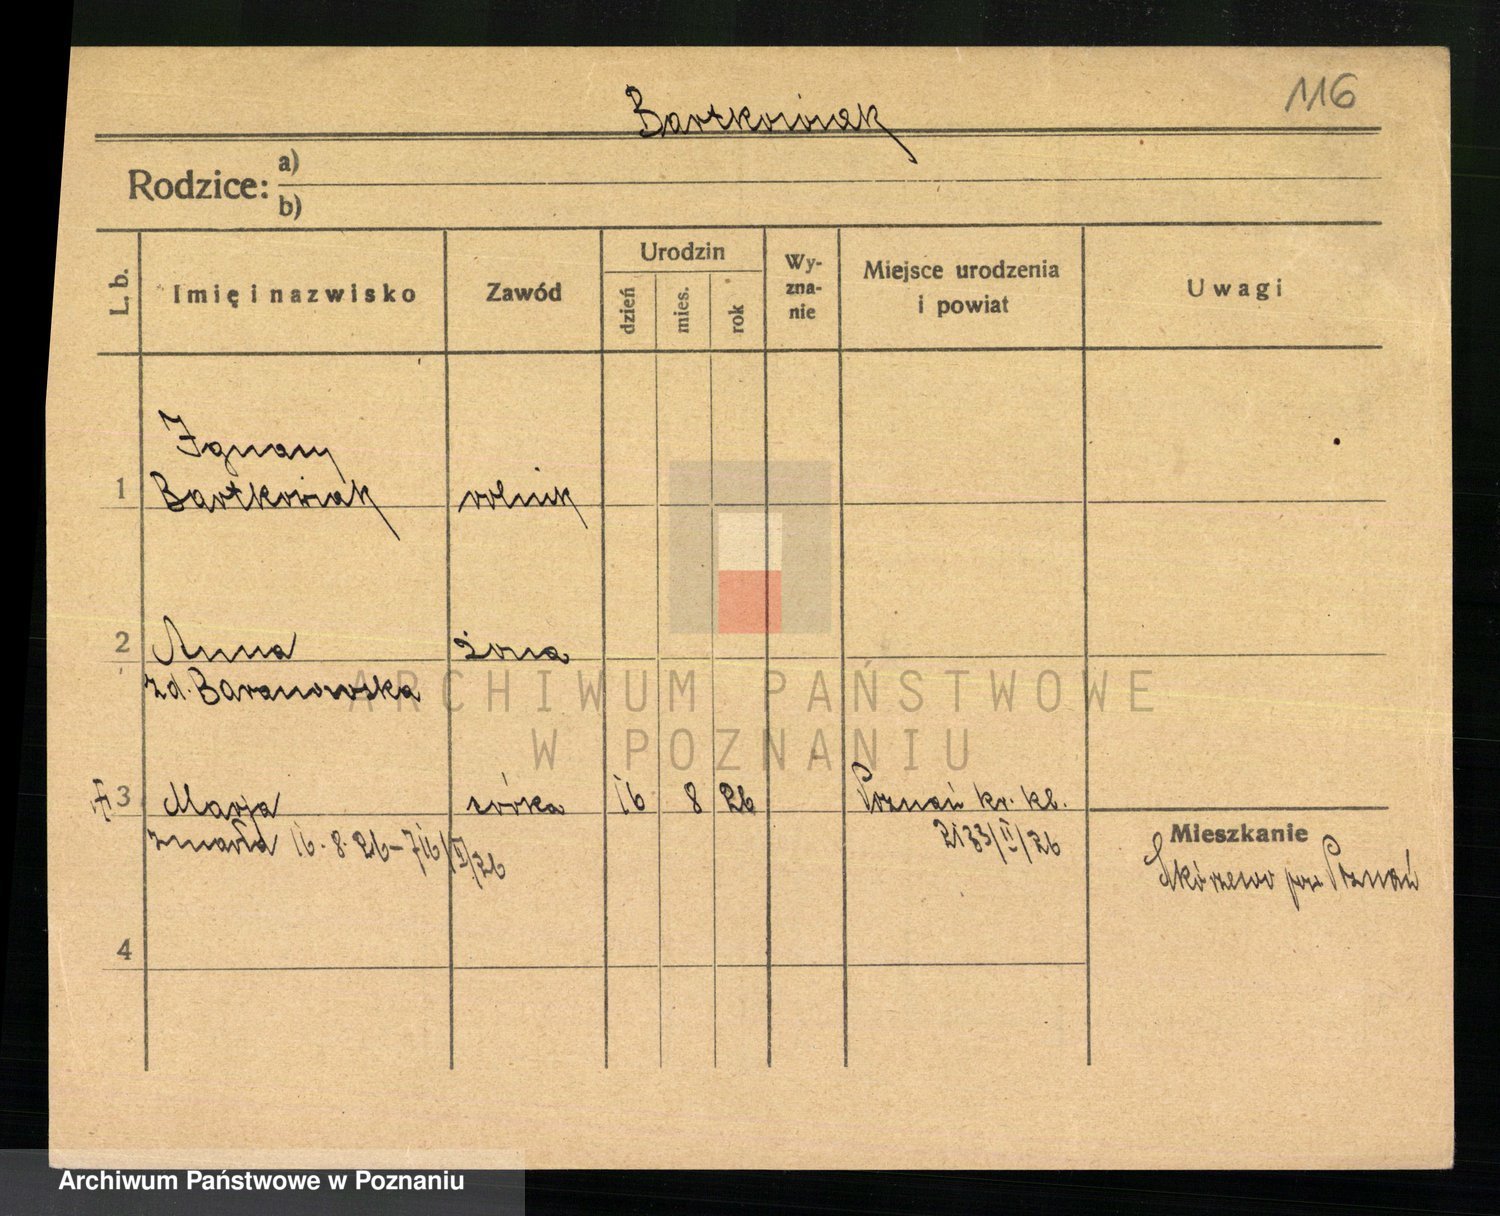 116
Bartkowiak
Rodzice: a)
b)
L. b.
Imię i nazwisko
Zawód
Urodzin
dzień
mies.
rok
Wy-
zna-
nie
Miejsce urodzenia
i powiat
Uwagi
Ignacy
1 Bartkowiak rolnik
2 Anna żona
zd. Baranowska
3 Marja córka 16 8 26 Poznań kr. kl.
zmarła 16. 8. 26 – 716/II/26 2133/II/26
Mieszkanie
Skórzewo pow Poznań
4
ARCHIWUM PAŃSTWOWE
W POZNANIU
Archiwum Państwowe w Poznaniu